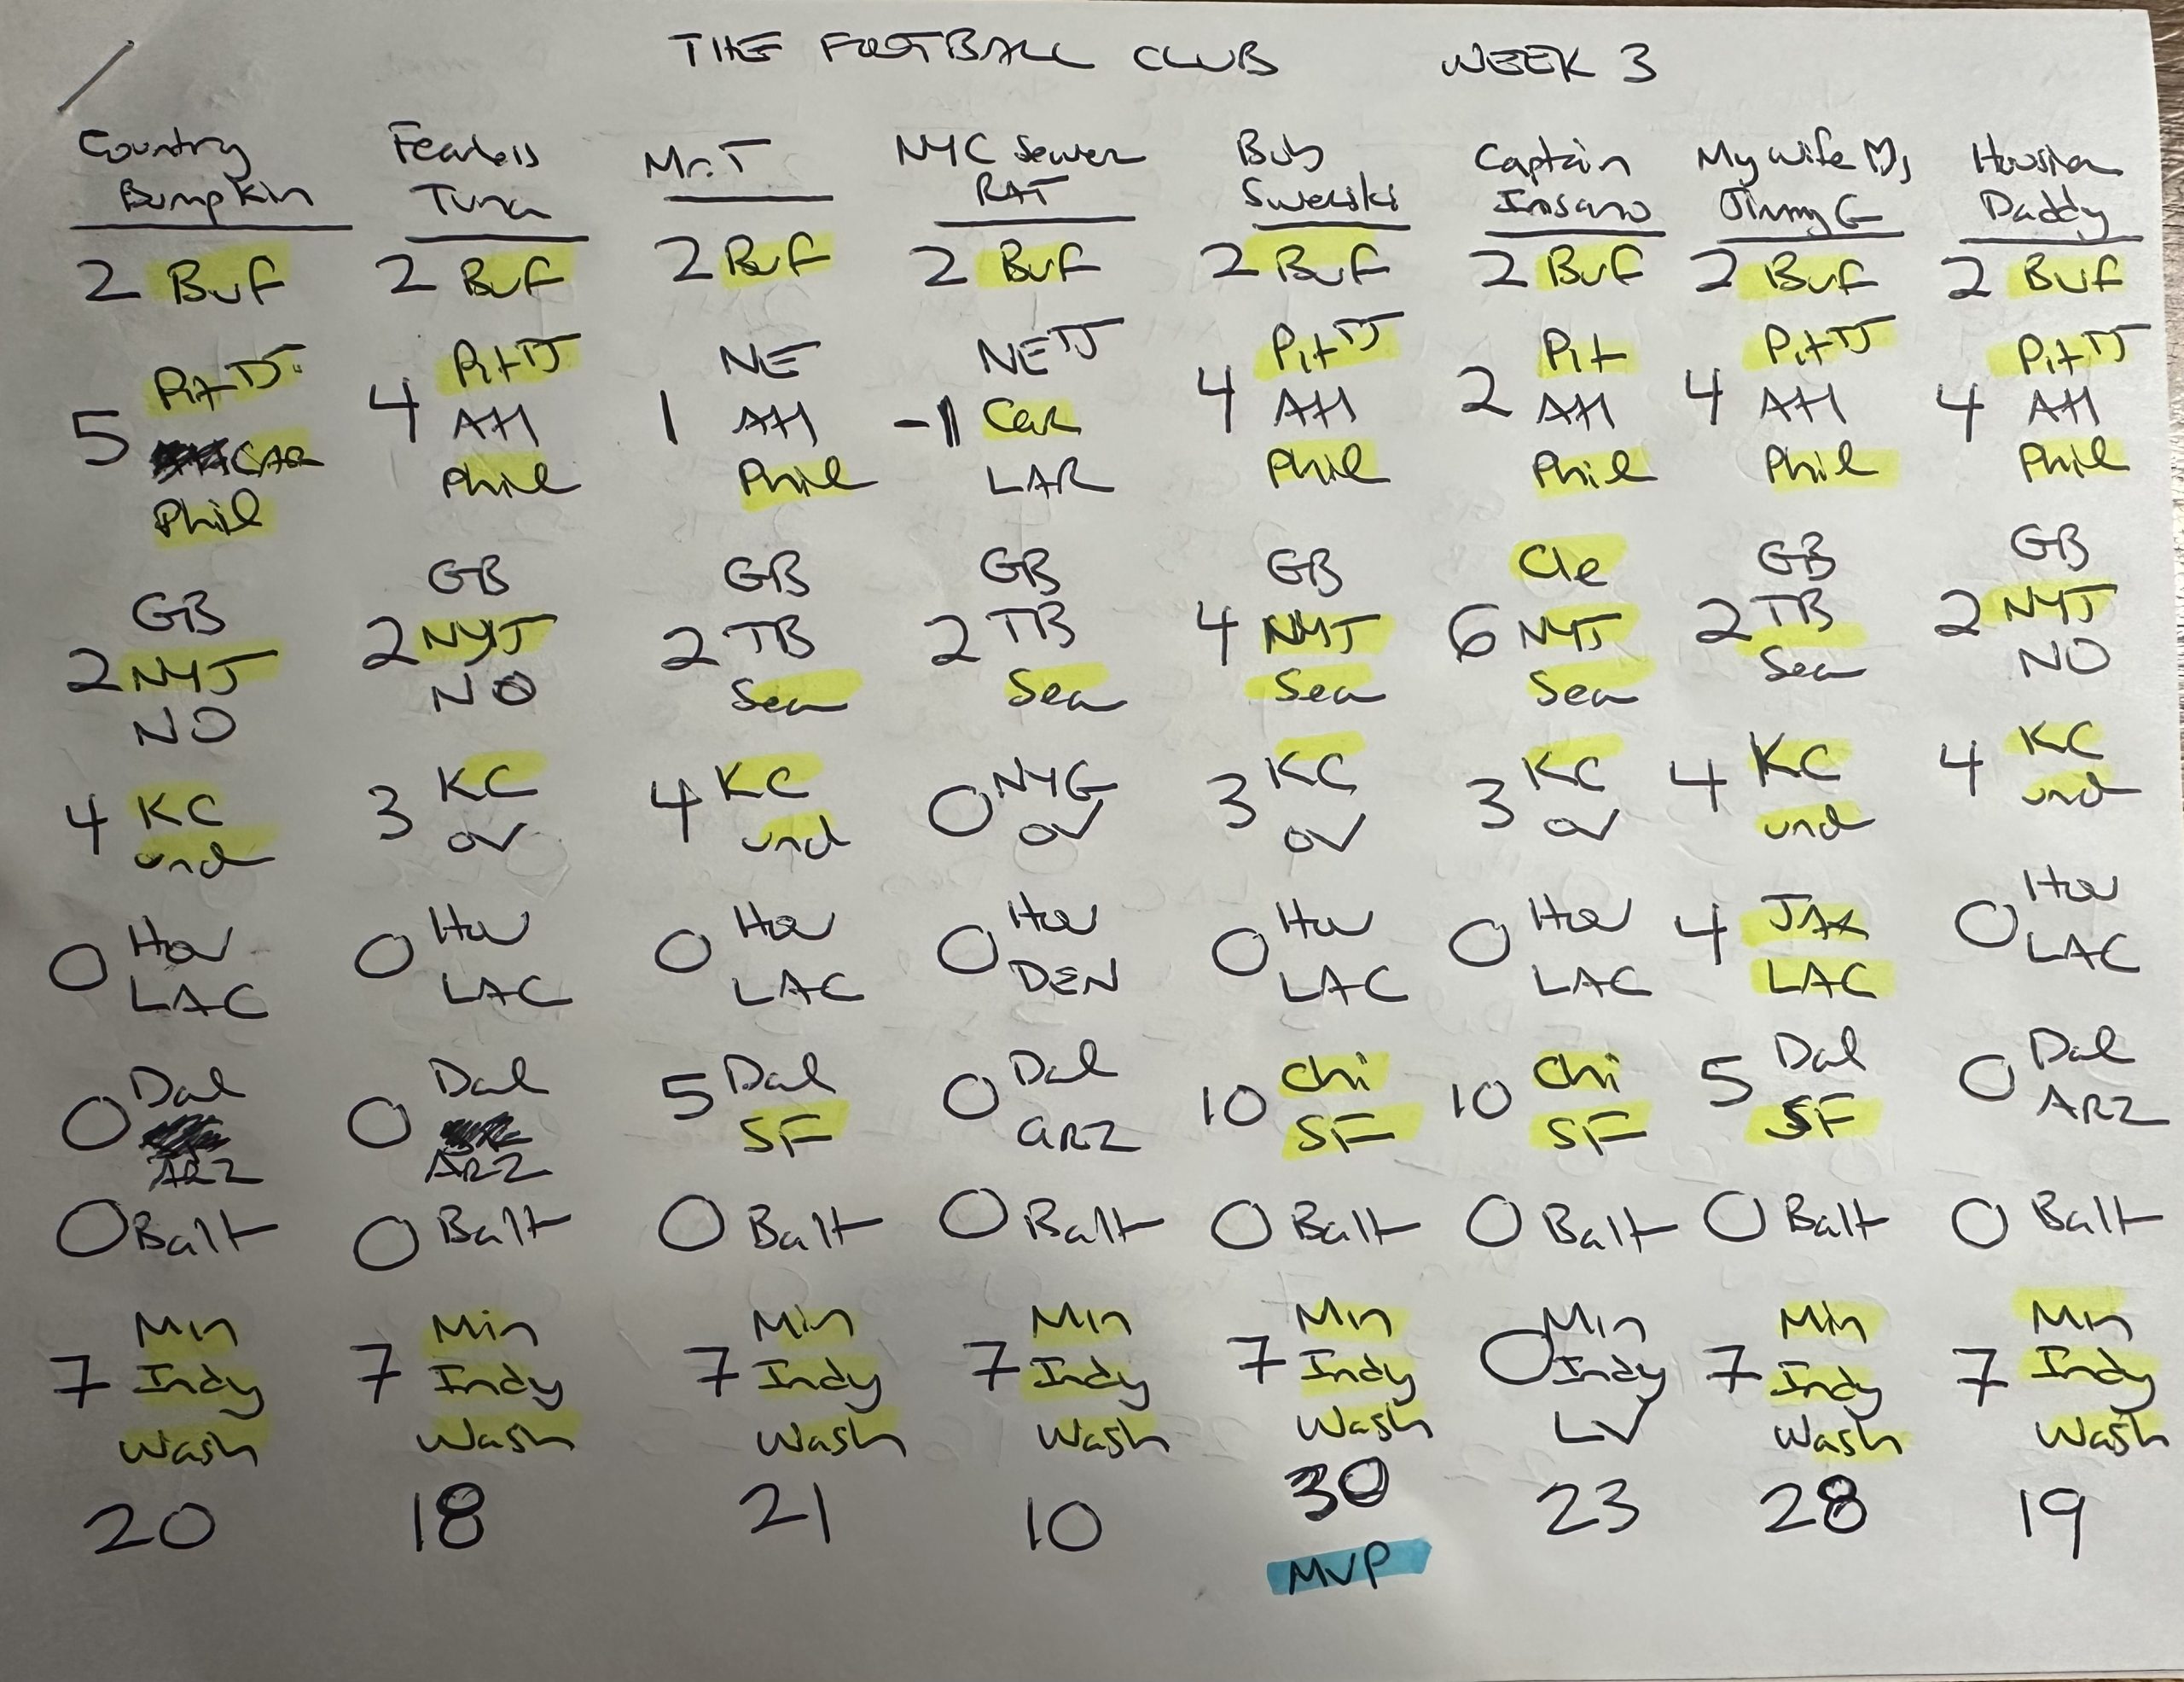 THE FOOTBALL CLUB WEEK 3
Country Bumpkin
2 Buf
Pit TJ
5 CAR
Phil
GB
2 NYJ
NO
4 KC
und
0 Hou
LAC
0 Dal
ARZ
0 Balt
Min
7 Indy
Wash
20
Fearless Tuna
2 Buf
Pit TJ
4 Atl
Phil
GB
2 NYJ
NO
3 KC
ov
0 Hou
LAC
0 Dal
ARZ
0 Balt
Min
7 Indy
Wash
18
Mr. T
2 Buf
NE
1 Atl
Phil
GB
2 TB
Sea
4 KC
und
0 Hou
LAC
5 Dal
SF
0 Balt
Min
7 Indy
Wash
21
NYC Sewer RAT
2 Buf
NE TJ
-1 Car
LAR
GB
2 TB
Sea
0 NYG
ov
0 Hou
DEN
0 Dal
ARZ
0 Balt
Min
7 Indy
Wash
10
Bob Swerski
2 Buf
Pit TJ
4 Atl
Phil
GB
4 NYJ
Sea
3 KC
ov
0 Hou
LAC
10 Chi
SF
0 Balt
Min
7 Indy
Wash
30
MVP
Captain Insano
2 Buf
Pit
2 Atl
Phil
Cle
6 NYJ
Sea
3 KC
ov
0 Hou
LAC
10 Chi
SF
0 Balt
Min
0 Indy
LV
23
My wife
Jimmy G
2 Buf
Pit TJ
4 Atl
Phil
GB
2 TB
Sea
4 KC
und
4 JAX
LAC
5 Dal
SF
0 Balt
Min
7 Indy
Wash
28
Daddy
2 Buf
Pit TJ
4 Atl
Phil
GB
2 NYJ
NO
4 KC
und
0 Hou
LAC
0 Dal
ARZ
0 Balt
Min
7 Indy
Wash
19